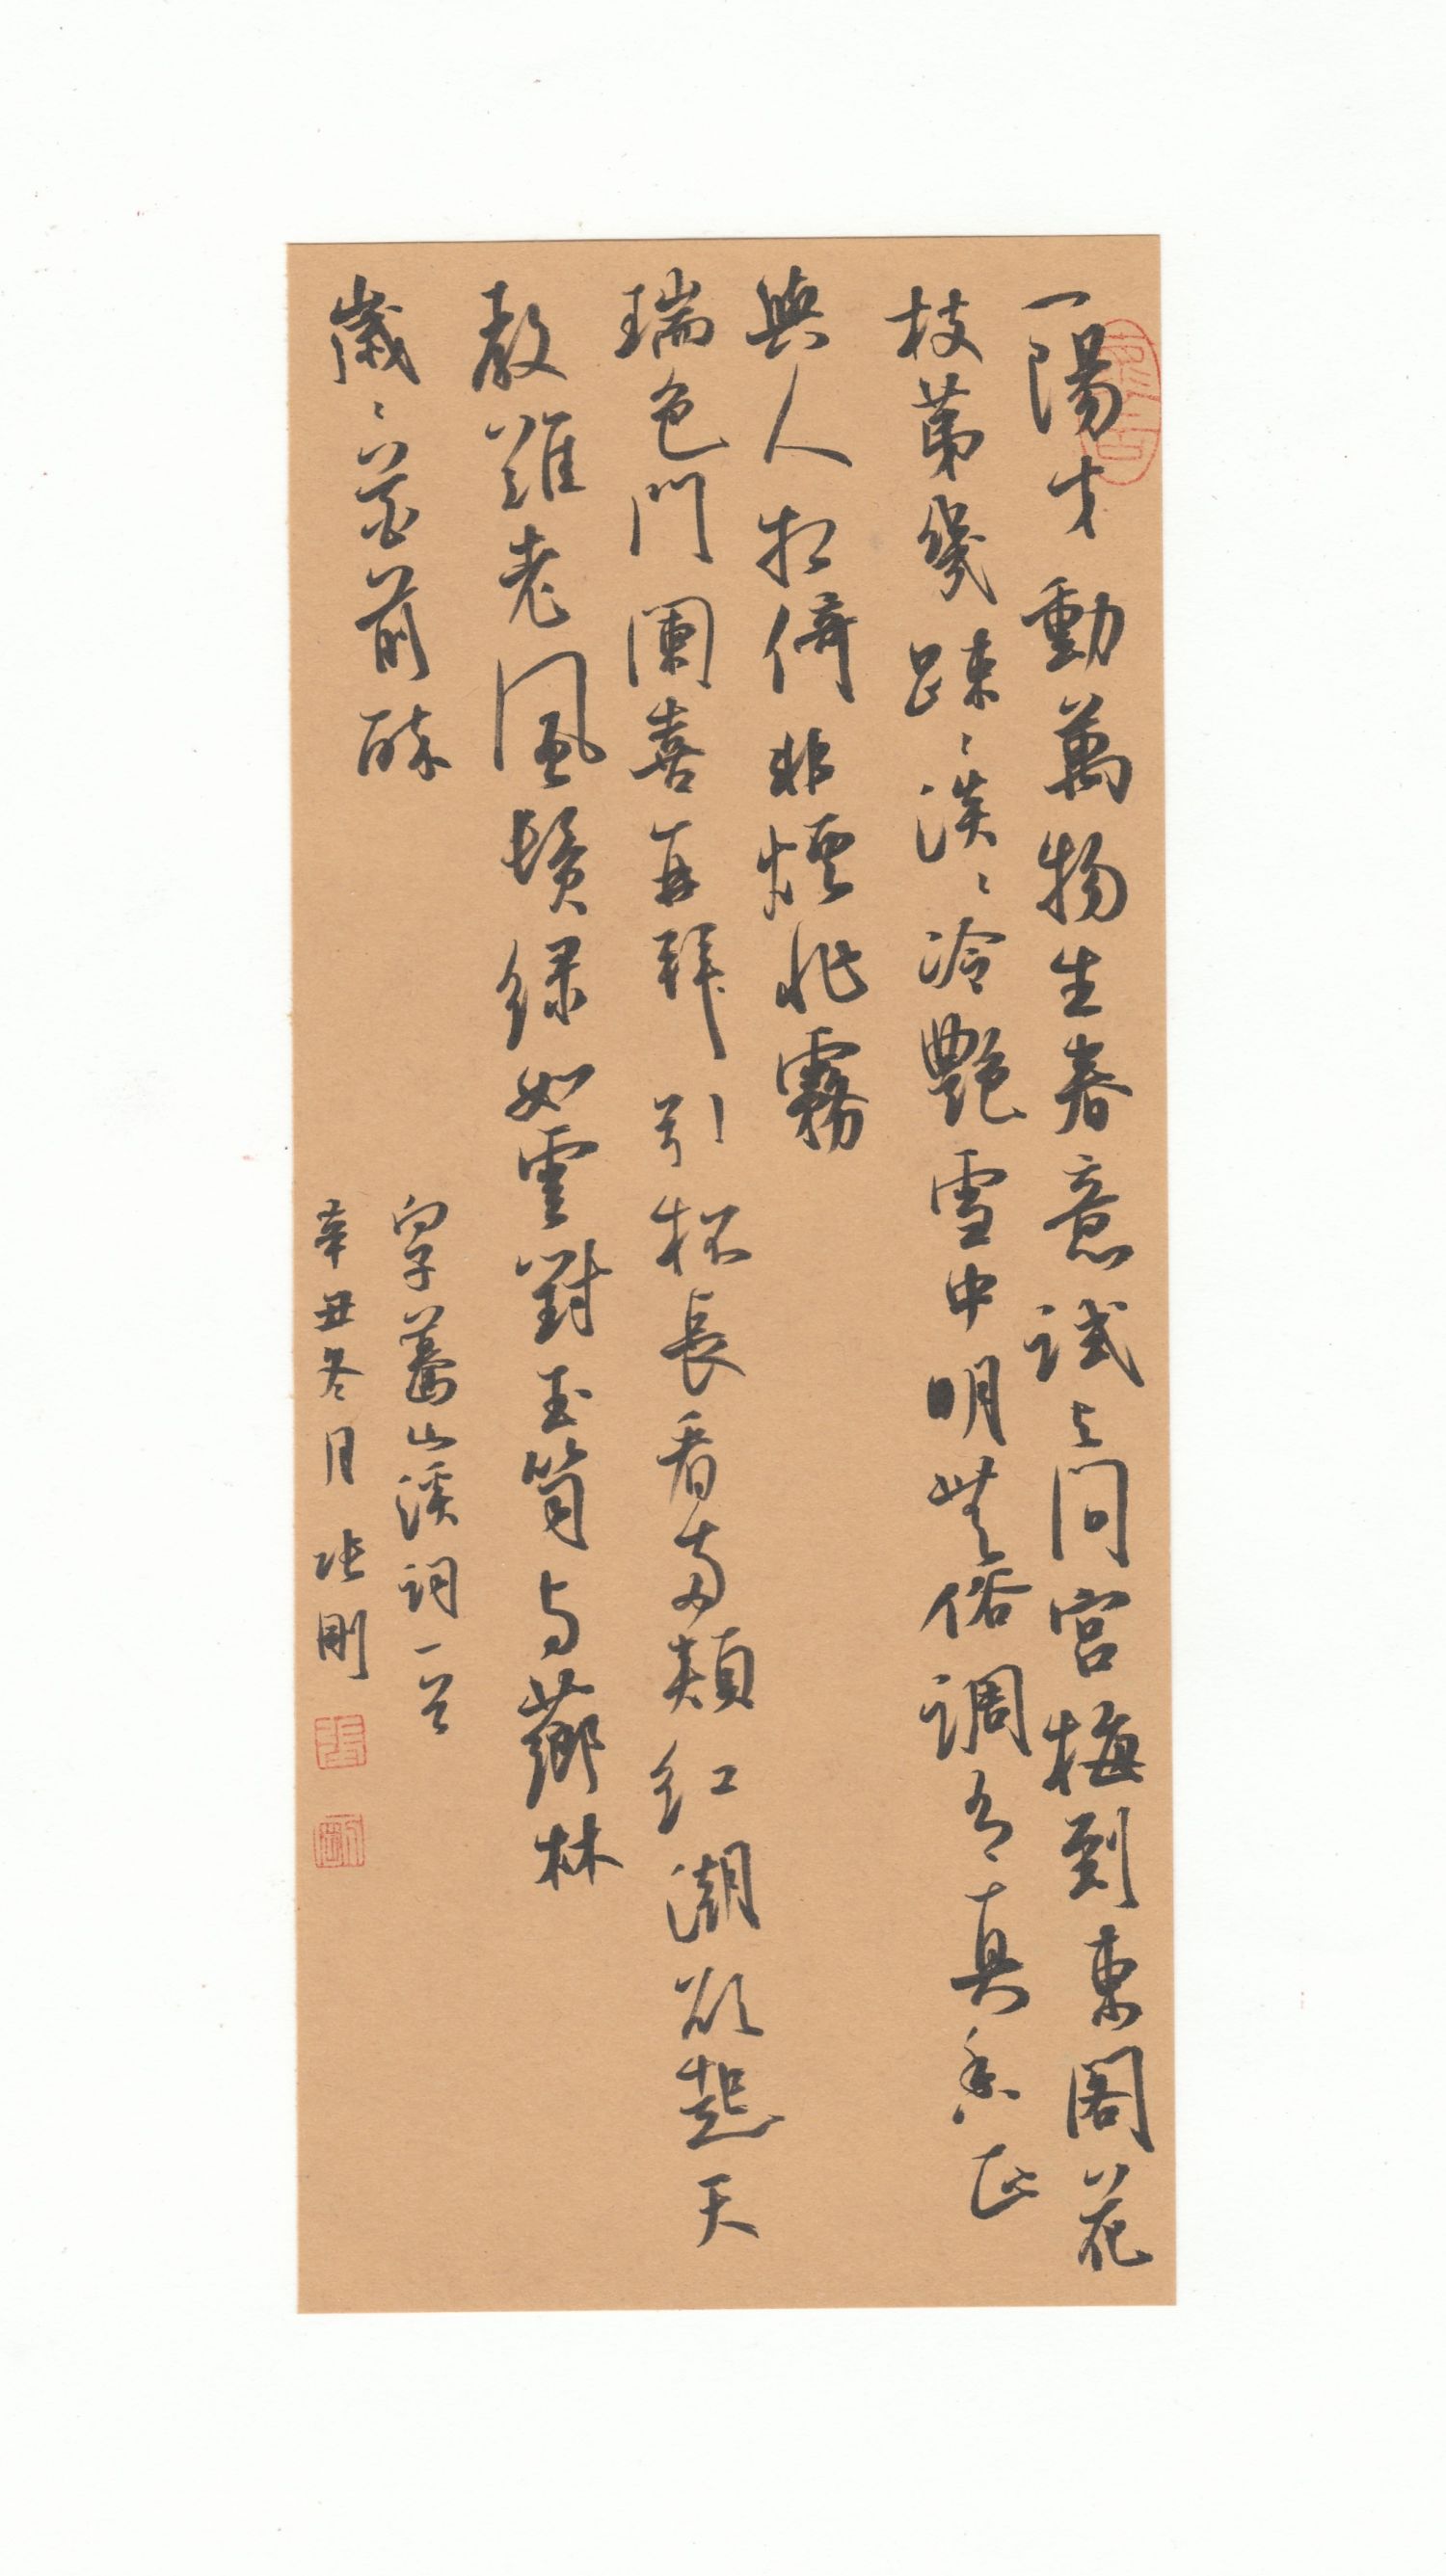 一陽才動萬物生春意試与問宮梅到東閣花
枝第幾踈〻淡〻冷艷雪中明無俗調有真香正
與人相倚非煙非霧
瑞色門闌喜再拜引杯長看兩頰紅潮欲起天
教難老風鬢綠如雲對玉筍与薌林
歲〻花前醉
向子驀山溪詞一首
辛丑冬月張剛